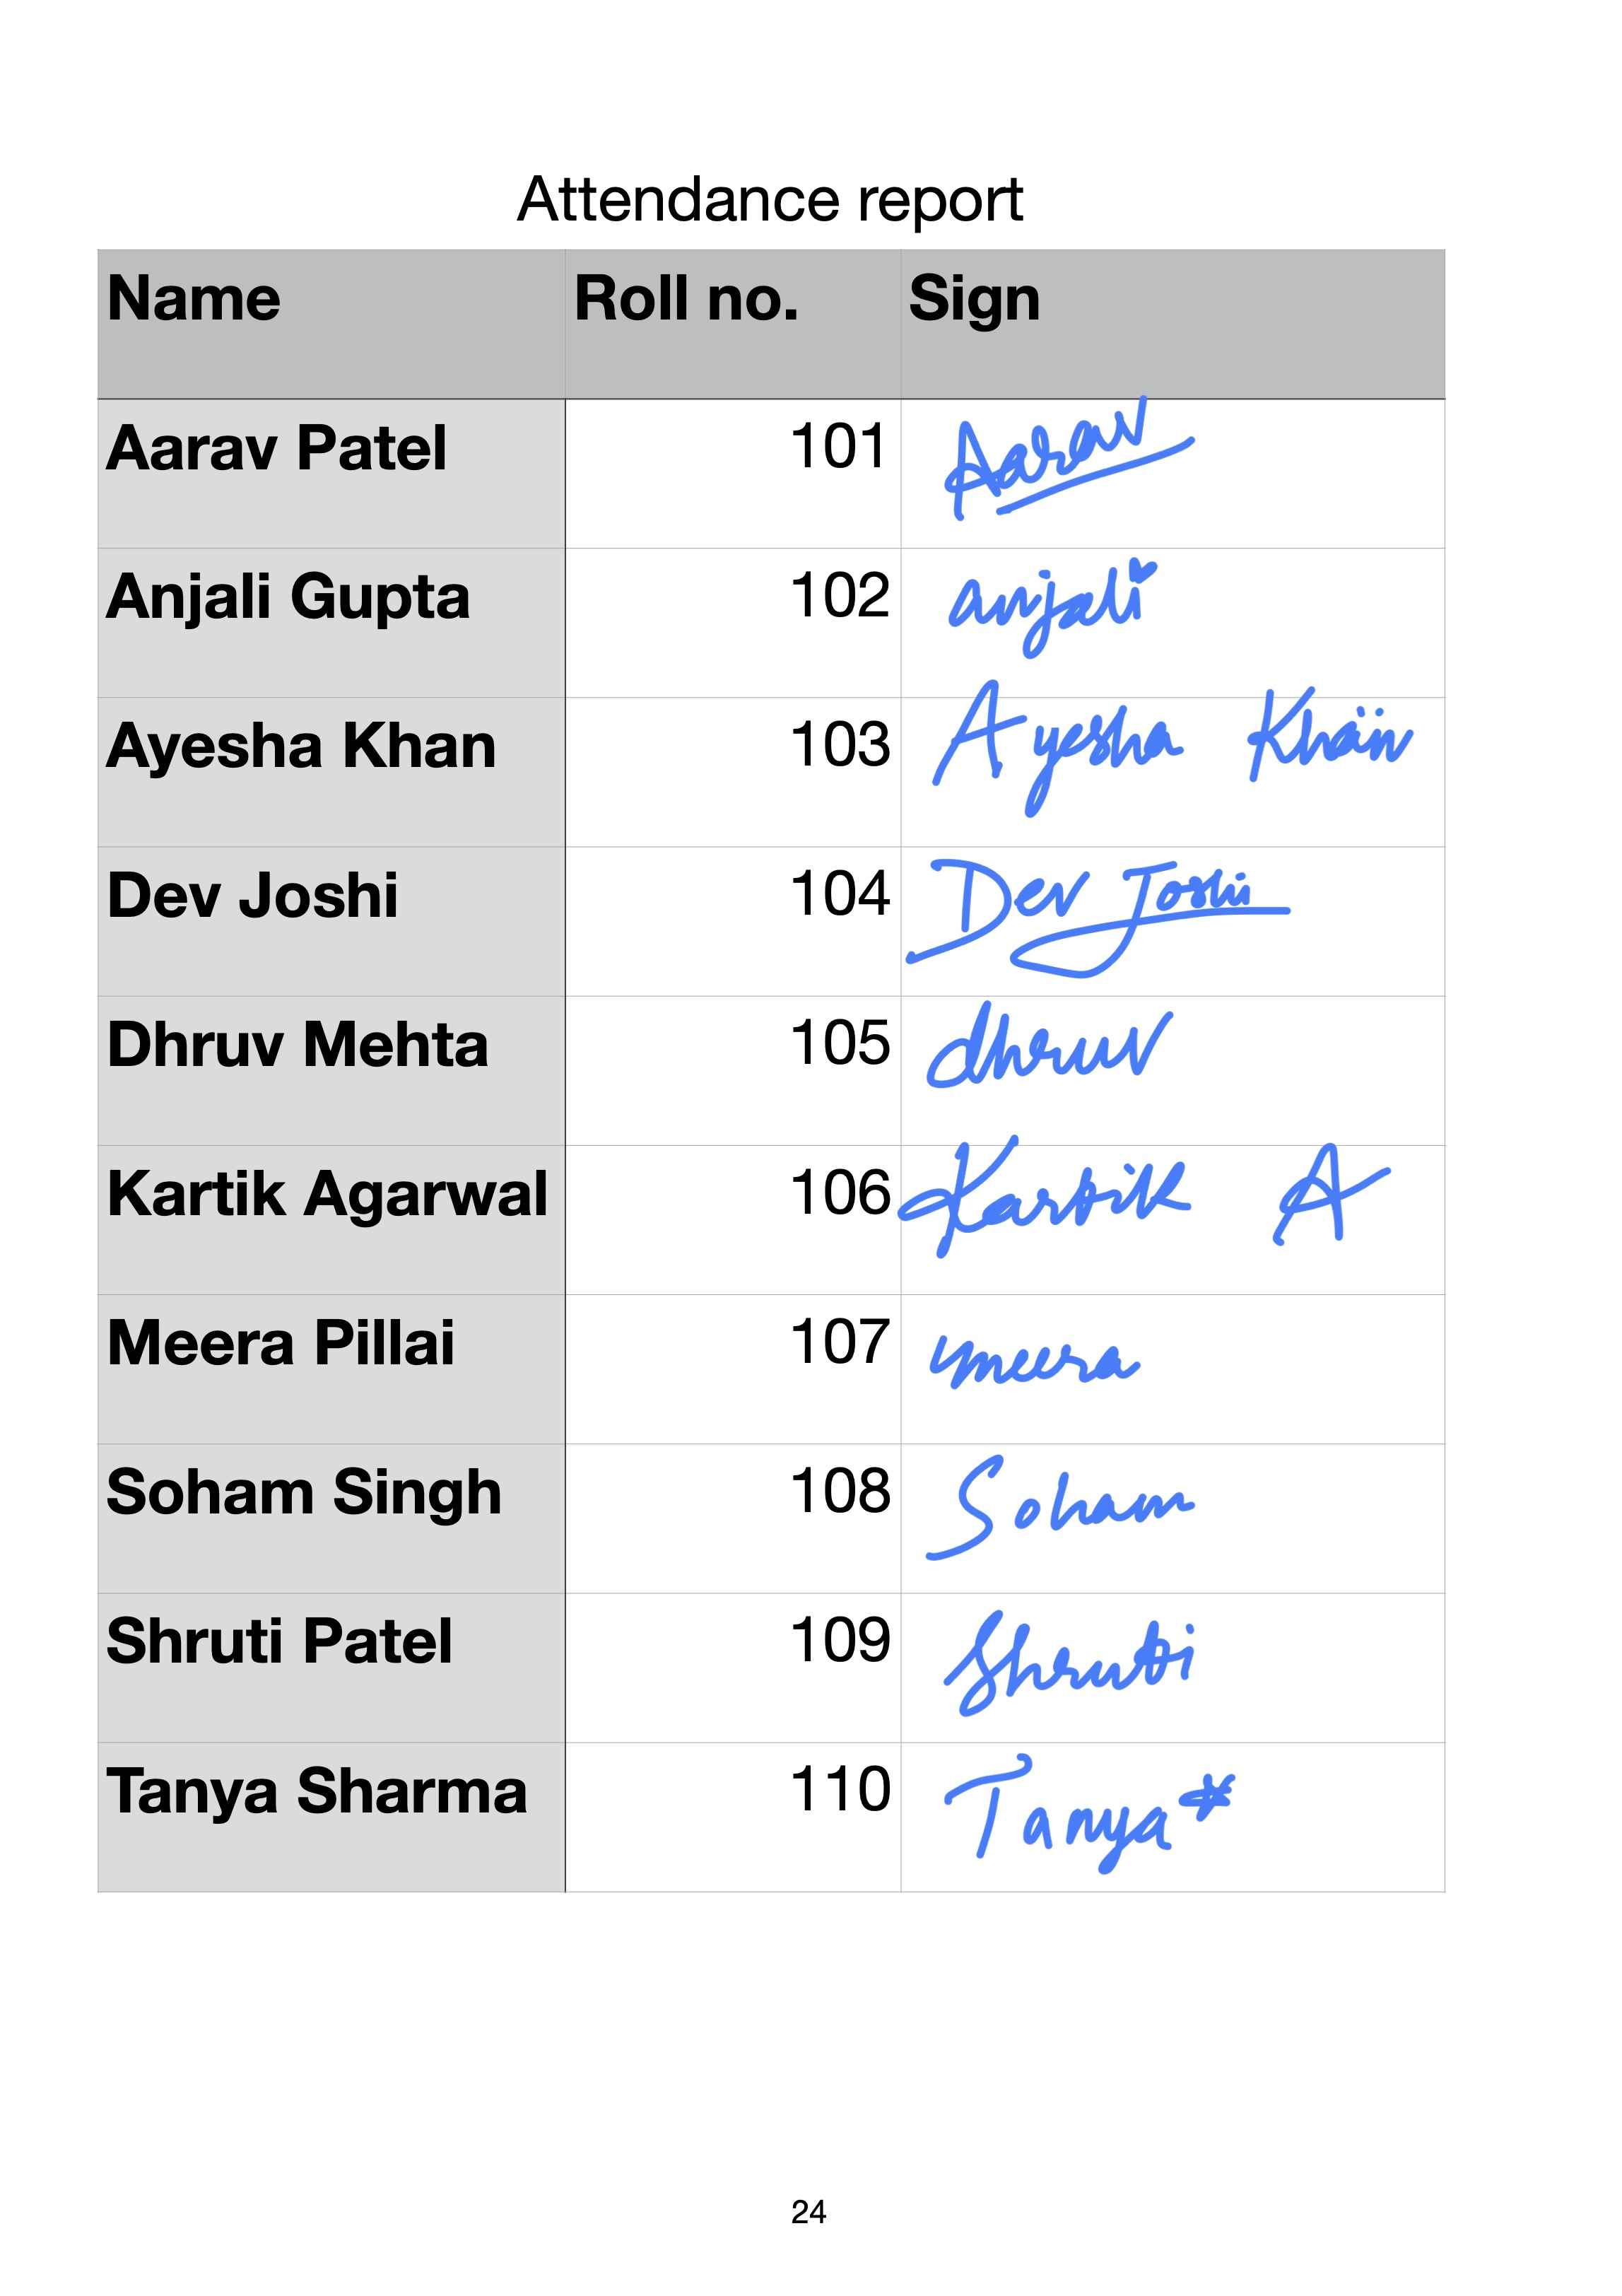 Attendance report
Name Roll no. Sign
Aarav Patel 101 Aarav
Anjali Gupta 102 anjali
Ayesha Khan 103 Ayesha Khan
Dev Joshi 104 Dev Joshi
Dhruv Mehta 105 dhruv
Kartik Agarwal 106 Kartik A
Meera Pillai 107 meera
Soham Singh 108 Soham
Shruti Patel 109 Shruti
Tanya Sharma 110 Tanya*
24